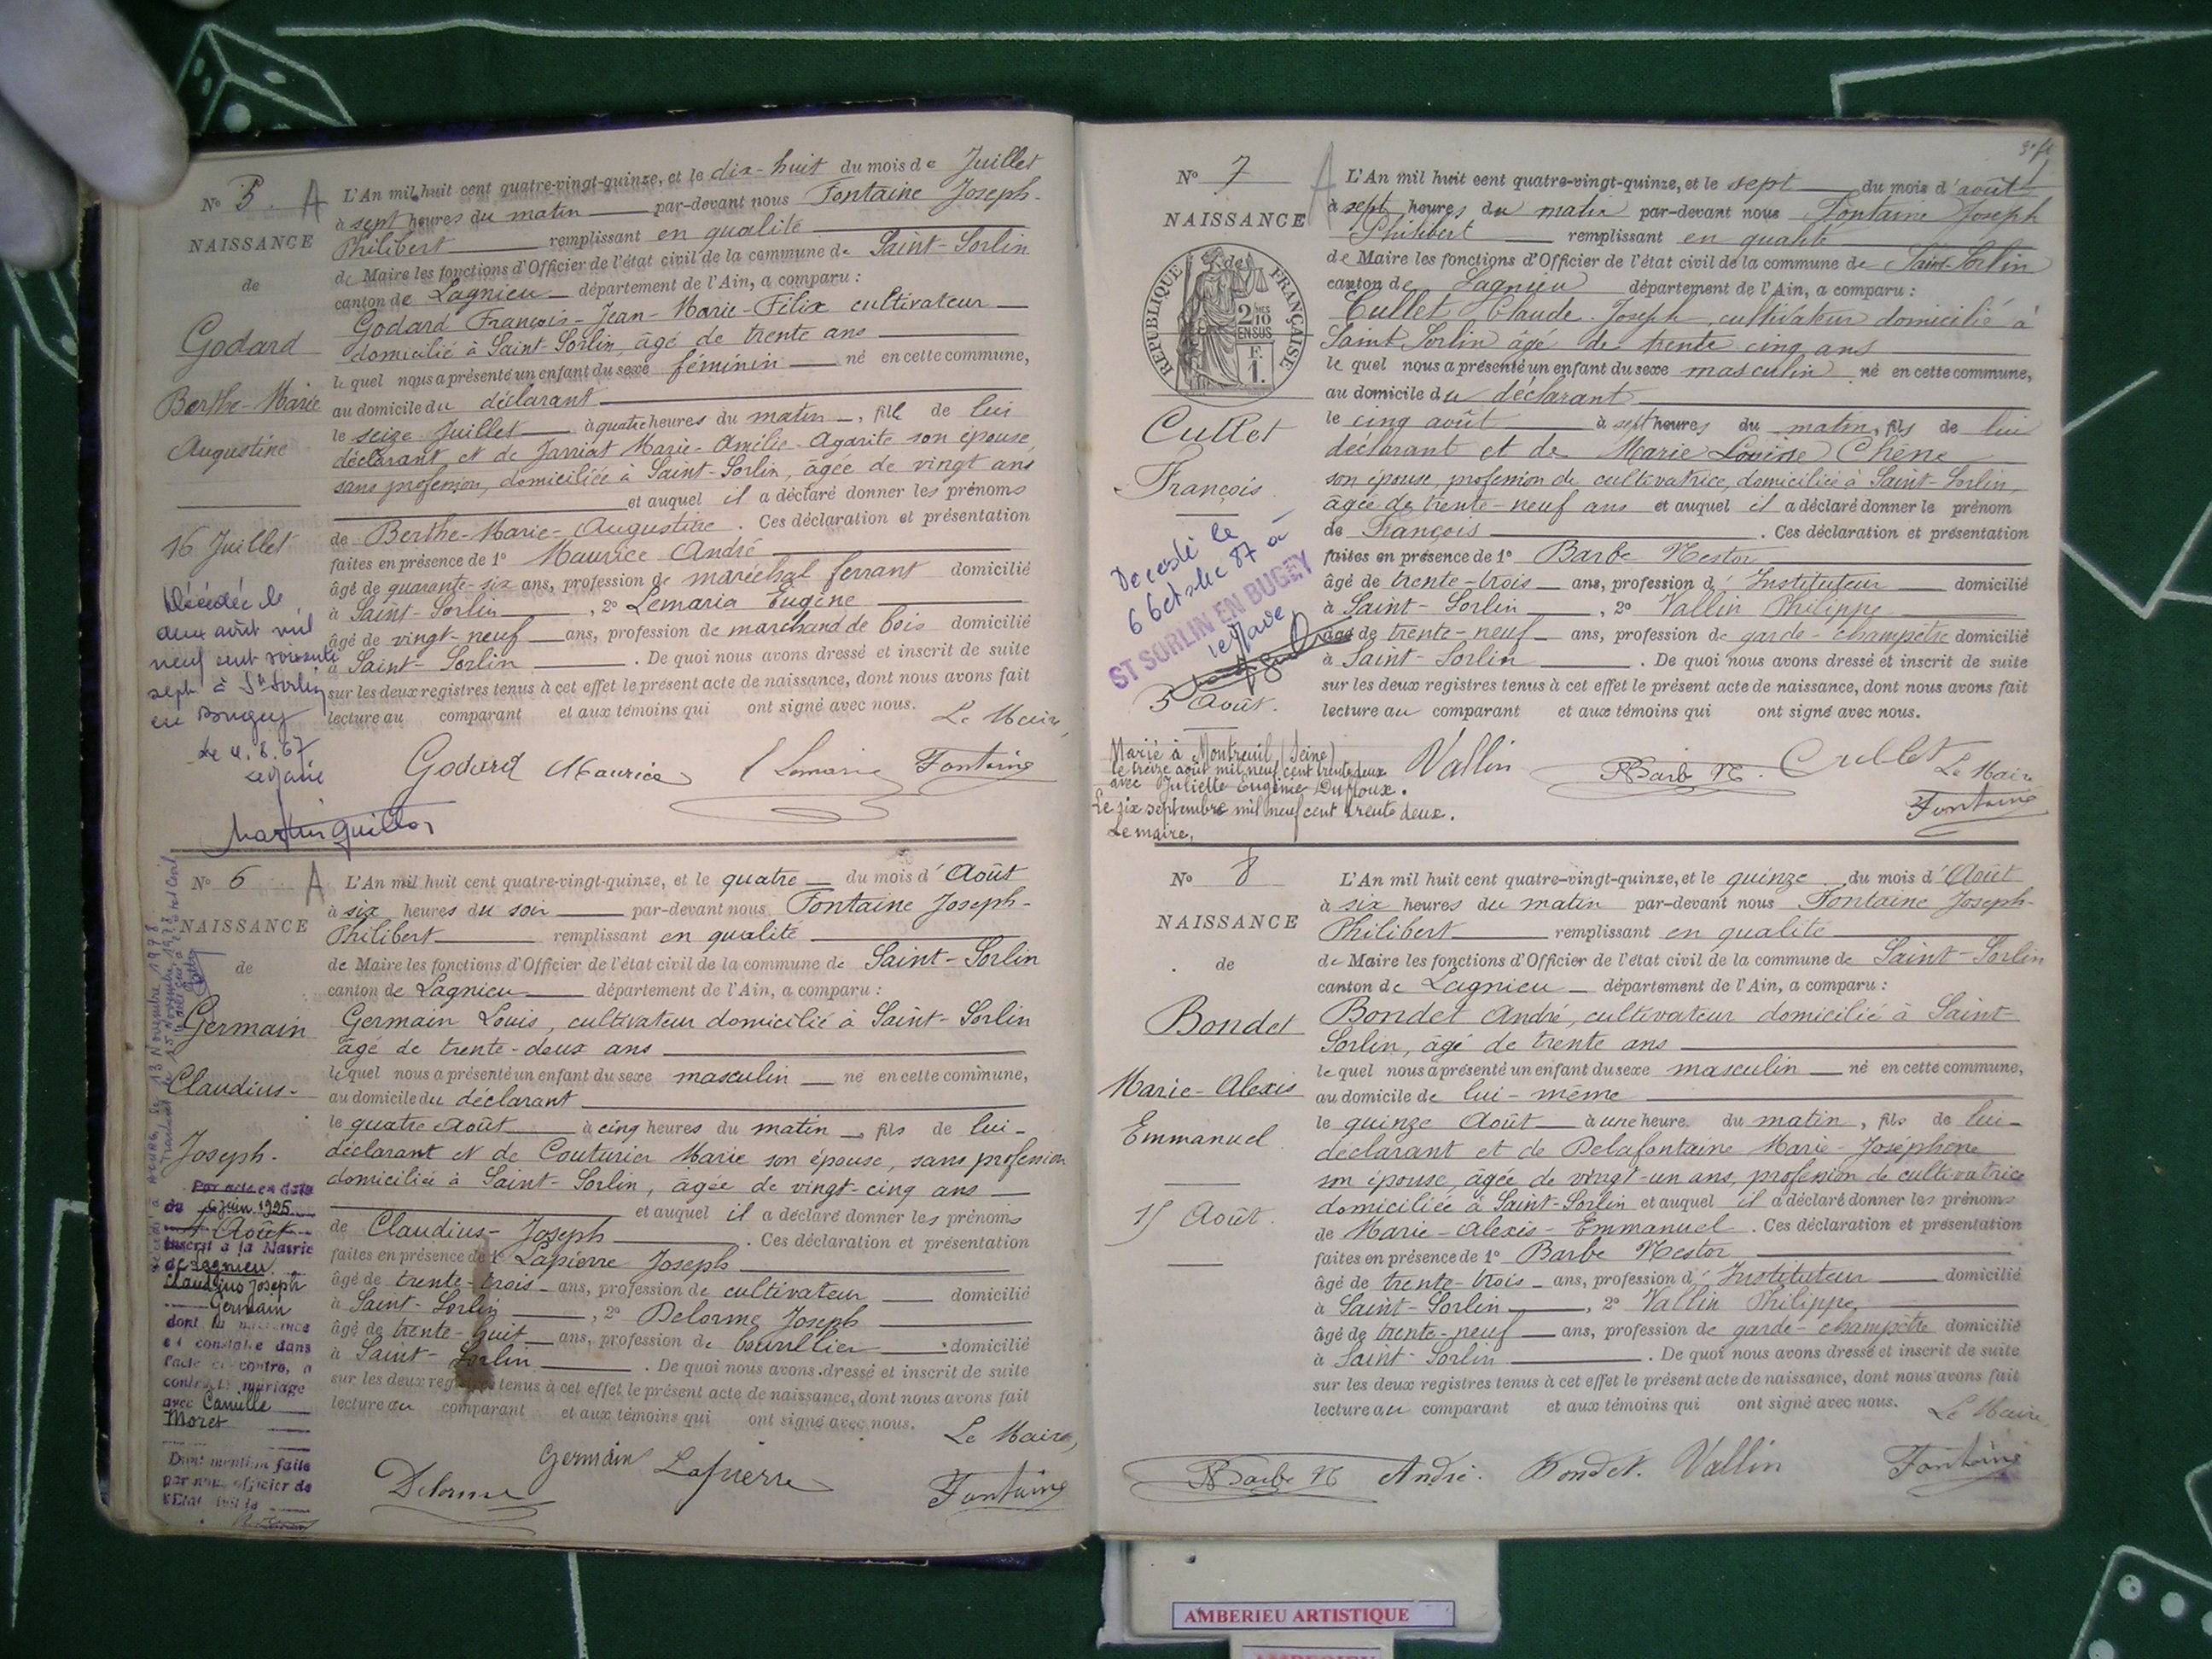 N° 5. A
NAISSANCE
de
Godard
Berthe-Marie
Augustine
16 Juillet
Décédée le
deux août mil
neuf cent soixante
sept à St Sorlin
en Bugey
Le 4.8.67
Le Maire
L'An mil huit cent quatre-vingt-quinze, et le dix-huit du mois de Juillet
à sept heures du matin par-devant nous Fontaine Joseph-
Philibert remplissant en qualité
de Maire les fonctions d'Officier de l'état civil de la commune de Saint-Sorlin
canton de Lagnieu département de l'Ain, a comparu :
Godard François-Jean-Marie-Félix cultivateur
domicilié à Saint-Sorlin, âgé de trente ans
lequel nous a présenté un enfant du sexe féminin né en cette commune,
au domicile du déclarant
le seize Juillet à quatre heures du matin, fille de lui
déclarant et de Jarriat Marie-Amélie-Agarite son épouse
sans profession, domiciliée à Saint-Sorlin, âgée de vingt ans
et auquel il a déclaré donner les prénoms
de Berthe-Marie-Augustine. Ces déclaration et présentation
faites en présence de 1° Maurice André
âgé de quarante-six ans, profession de maréchal ferrant domicilié
à Saint-Sorlin, 2° Lemaria Eugène
âgé de vingt-neuf ans, profession de marchand de bois domicilié
à Saint-Sorlin. De quoi nous avons dressé et inscrit de suite
sur les deux registres tenus à cet effet le présent acte de naissance, dont nous avons fait
lecture au comparant et aux témoins qui ont signé avec nous.
Le Maire,
Godard Maurice Lemaria Fontaine
N° 6 A
NAISSANCE
de
Germain
Claudius-
Joseph.
4 Août
Par acte en date
du 6 juin 1925
inscrit à la Mairie
de Lagnieu
Claudius Joseph
Germain
dont la naissance
est constatée dans
l'acte ci-contre, a
contracté mariage
avec Camille
Moret
Dont mention faite
par nous officier de
l'Etat civil
L'An mil huit cent quatre-vingt-quinze, et le quatre du mois d'Août
à six heures du soir par-devant nous Fontaine Joseph-
Philibert remplissant en qualité
de Maire les fonctions d'Officier de l'état civil de la commune de Saint-Sorlin
canton de Lagnieu département de l'Ain, a comparu :
Germain Louis, cultivateur domicilié à Saint-Sorlin
âgé de trente-deux ans
lequel nous a présenté un enfant du sexe masculin né en cette commune,
au domicile du déclarant
le quatre Août à cinq heures du matin, fils de lui-
déclarant et de Couturier Marie son épouse, sans profession
domiciliée à Saint-Sorlin, âgée de vingt-cinq ans
et auquel il a déclaré donner les prénoms
de Claudius-Joseph. Ces déclaration et présentation
faites en présence de 1° Lapierre Joseph
âgé de trente-trois ans, profession de cultivateur domicilié
à Saint-Sorlin, 2° Delorme Joseph
âgé de trente-huit ans, profession de bourrelier domicilié
à Saint-Sorlin. De quoi nous avons dressé et inscrit de suite
sur les deux registres tenus à cet effet le présent acte de naissance, dont nous avons fait
lecture au comparant et aux témoins qui ont signé avec nous.
Le Maire,
Delorme Germain Lapierre Fontaine
N° 7 A
NAISSANCE
de
RÉPUBLIQUE FRANÇAISE
2 10MES
EN SUS
1 F.
Cullet
François
Décédé le
6 Octobre 87 à
ST SORLIN EN BUGEY
le Maire
5 Août.
Marié à Montreuil (Seine)
le treize août mil neuf cent trente deux
avec Juliette Eugénie Dufloux.
Le six septembre mil neuf cent trente deux.
Le maire,
L'An mil huit cent quatre-vingt-quinze, et le sept du mois d'août
à sept heures du matin par-devant nous Fontaine Joseph
Philibert remplissant en qualité
de Maire les fonctions d'Officier de l'état civil de la commune de Saint-Sorlin
canton de Lagnieu département de l'Ain, a comparu :
Cullet Claude-Joseph, cultivateur domicilié à
Saint Sorlin âgé de trente cinq ans
lequel nous a présenté un enfant du sexe masculin né en cette commune,
au domicile du déclarant
le cinq août à sept heures du matin, fils de lui
déclarant et de Marie Louise Chêne
son épouse, profession de cultivatrice, domiciliée à Saint-Sorlin,
âgée de trente-neuf ans et auquel il a déclaré donner le prénom
de François. Ces déclaration et présentation
faites en présence de 1° Barbe Nestor
âgé de trente-trois ans, profession d'Instituteur domicilié
à Saint-Sorlin, 2° Vallin Philippe
âgé de trente-neuf ans, profession de garde-champêtre domicilié
à Saint-Sorlin. De quoi nous avons dressé et inscrit de suite
sur les deux registres tenus à cet effet le présent acte de naissance, dont nous avons fait
lecture au comparant et aux témoins qui ont signé avec nous.
Vallin Barbe N. Cullet Le Maire
Fontaine
N° 8
NAISSANCE
de
Bondet
Marie-Alexis
Emmanuel
15 Août.
L'An mil huit cent quatre-vingt-quinze, et le quinze du mois d'Août
à six heures du matin par-devant nous Fontaine Joseph-
Philibert remplissant en qualité
de Maire les fonctions d'Officier de l'état civil de la commune de Saint-Sorlin
canton de Lagnieu département de l'Ain, a comparu :
Bondet André, cultivateur domicilié à Saint-
Sorlin, âgé de trente ans
lequel nous a présenté un enfant du sexe masculin né en cette commune,
au domicile de lui-même
le quinze Août à une heure du matin, fils de lui-
déclarant et de Delafontaine Marie-Joséphine
son épouse, âgée de vingt-un ans, profession de cultivatrice
domiciliée à Saint-Sorlin et auquel il a déclaré donner les prénoms
de Marie-Alexis-Emmanuel. Ces déclaration et présentation
faites en présence de 1° Barbe Nestor
âgé de trente-trois ans, profession d'Instituteur domicilié
à Saint-Sorlin, 2° Vallin Philippe,
âgé de trente-neuf ans, profession de garde-champêtre domicilié
à Saint-Sorlin. De quoi nous avons dressé et inscrit de suite
sur les deux registres tenus à cet effet le présent acte de naissance, dont nous avons fait
lecture au comparant et aux témoins qui ont signé avec nous.
Le Maire
Barbe N André. Bondet. Vallin Fontaine
AMBERIEU ARTISTIQUE